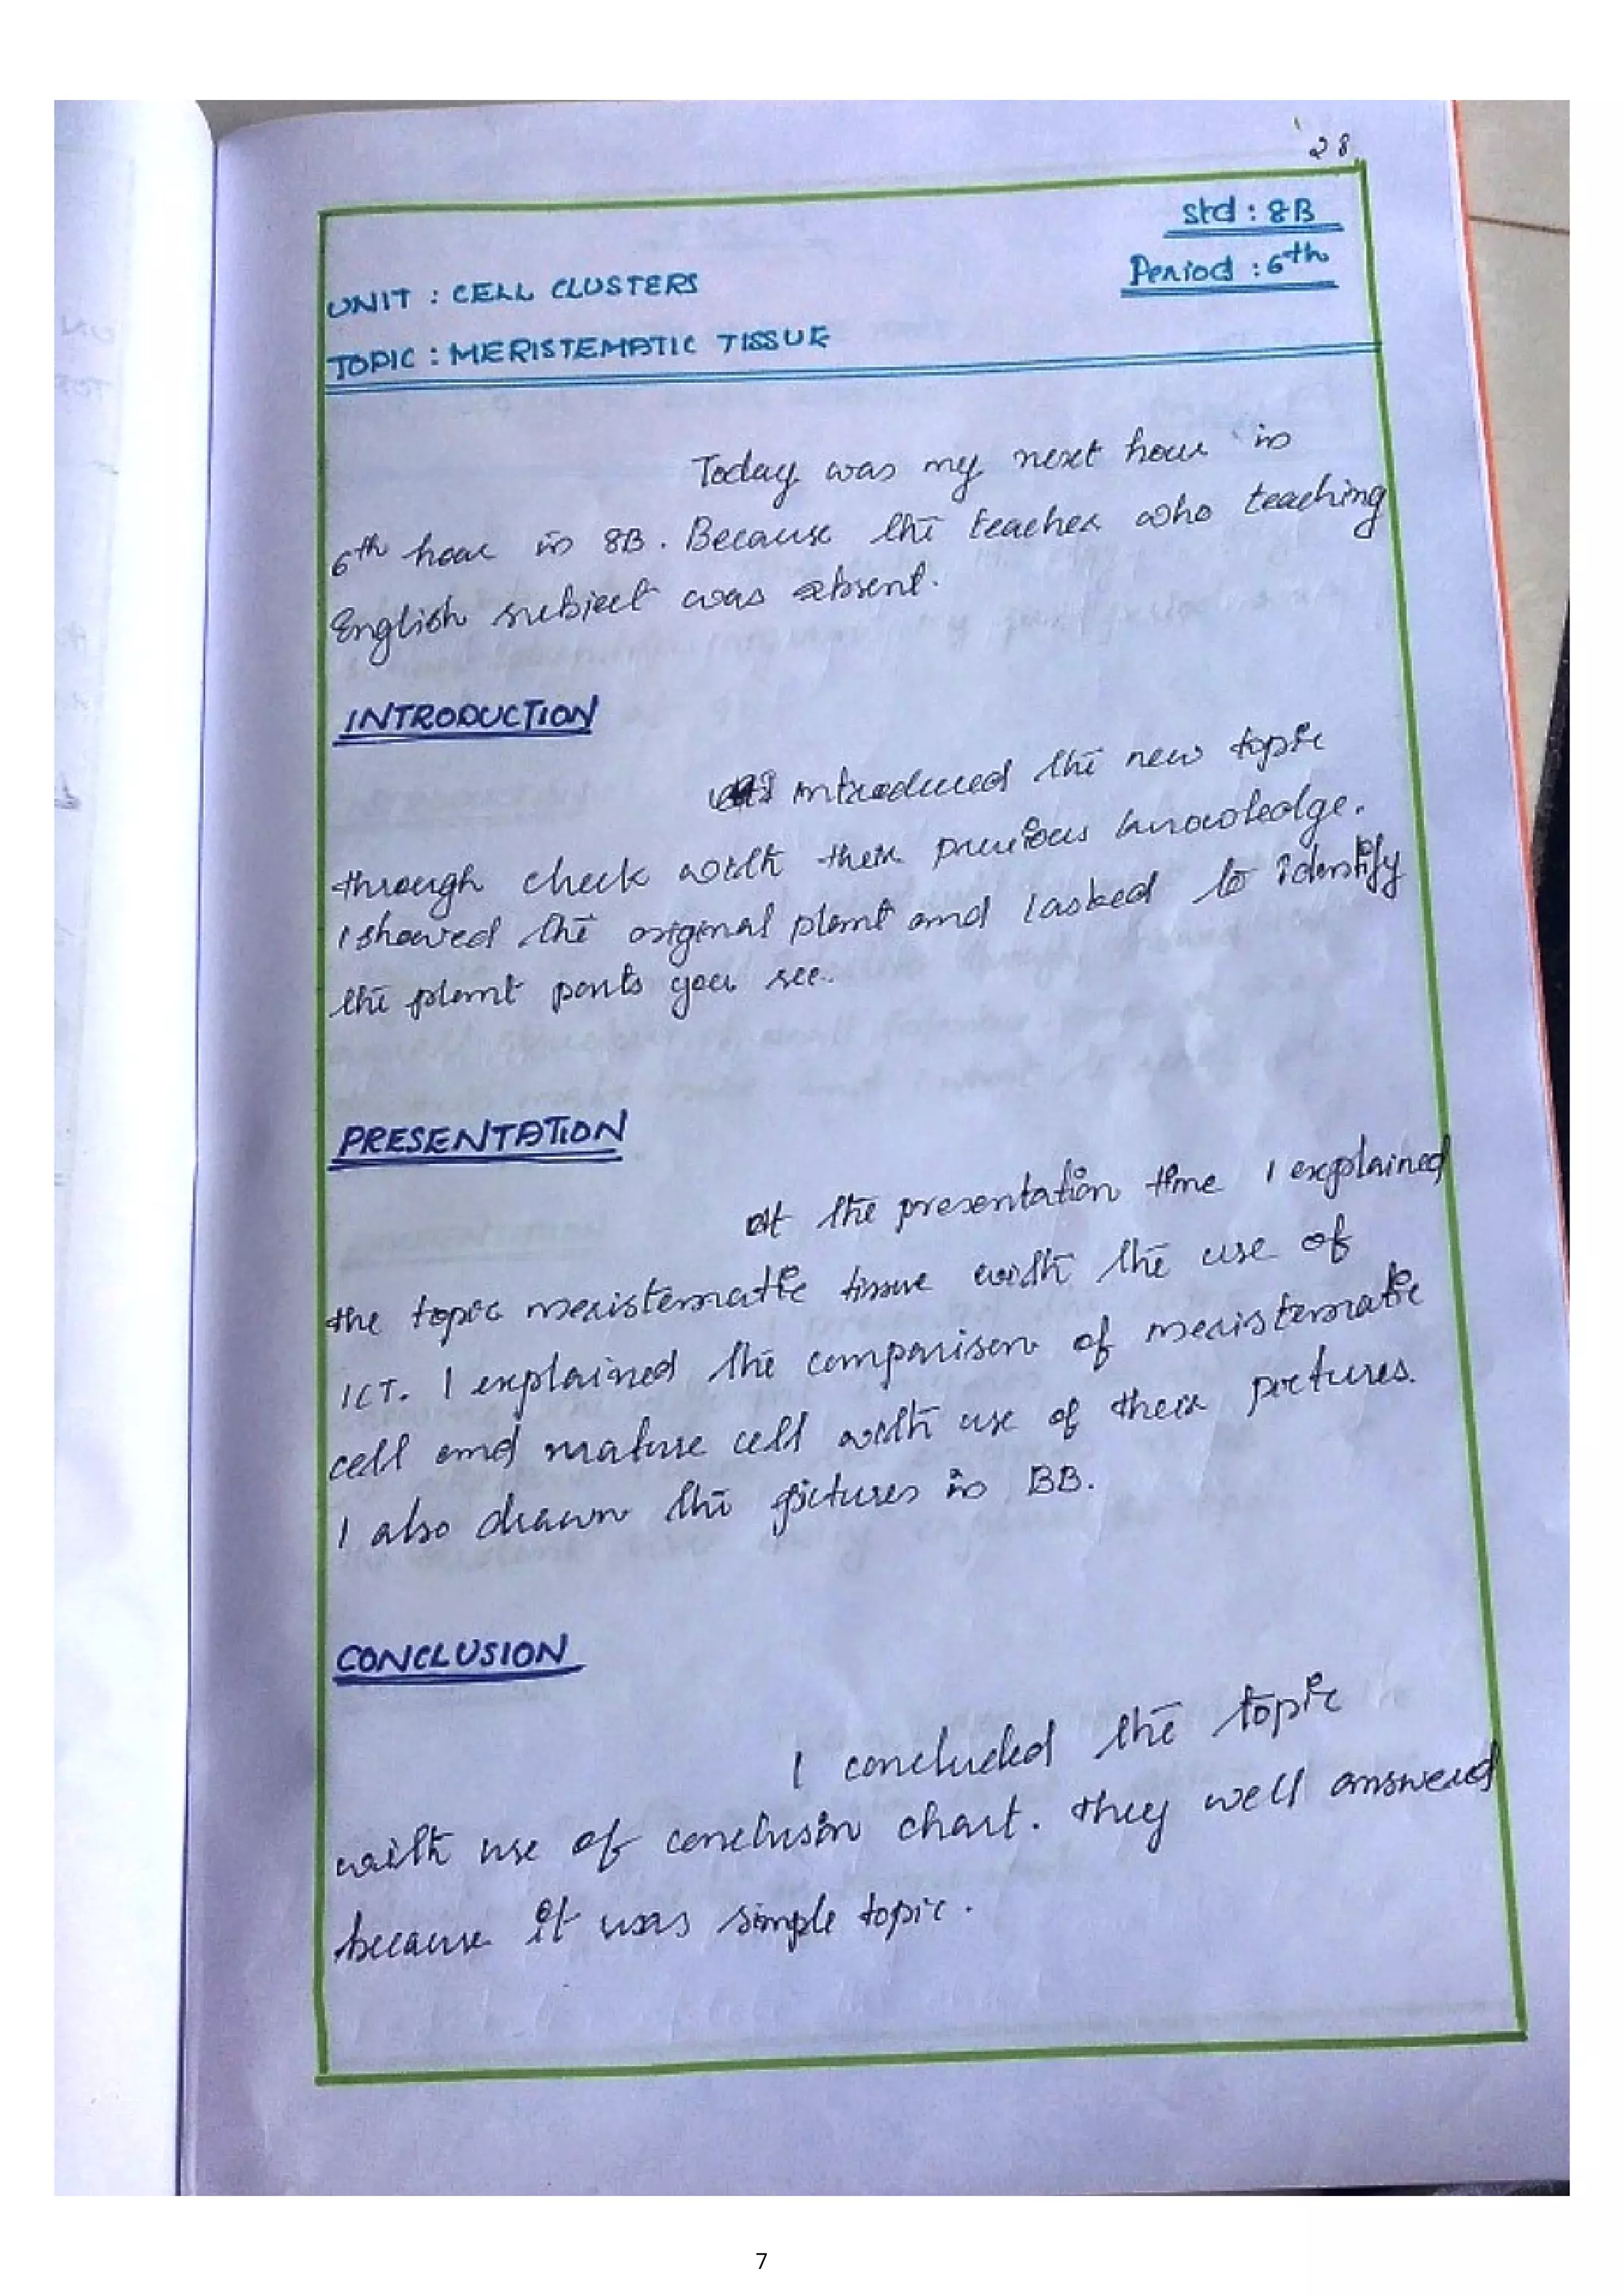 28
Std : 8B
Period : 6th
UNIT : CELL CLUSTERS
TOPIC : MERISTEMATIC TISSUE
Today was my next hour in
6th hour in 8B. Because the teacher who teaching
English subject was absent.
INTRODUCTION
I introduced the new topic
through check with their previous knowledge.
I showed the original plant and I asked to identify
the plant parts you see.
PRESENTATION
At the presentation time I explained
the topic meristematic tissue with the use of
ICT. I explained the comparison of meristematic
cell and mature cell with use of their pictures.
I also drawn the pictures in BB.
CONCLUSION
I concluded the topic
with use of conclusion chart. They well answered
because it was simple topic.
7